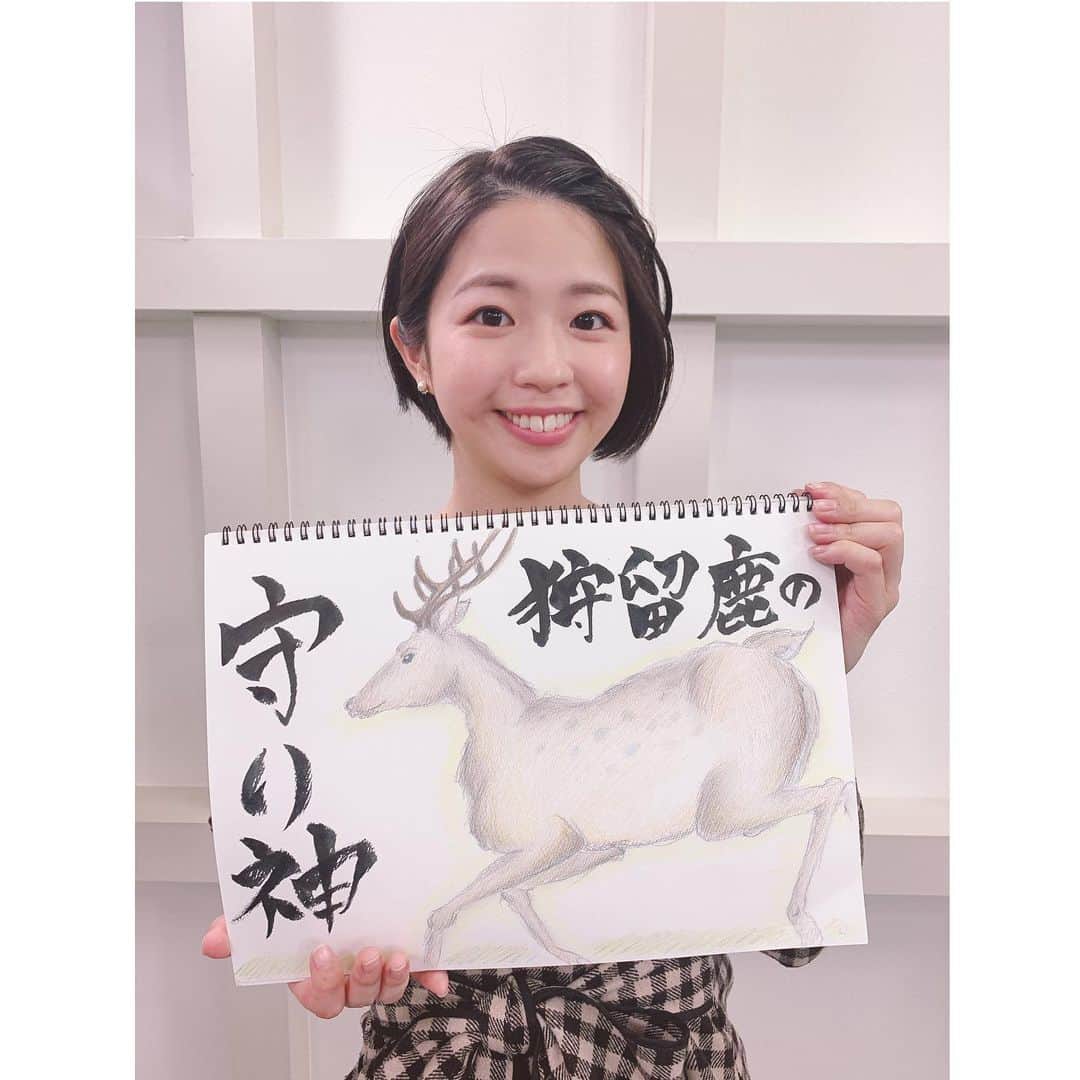 狩留鹿の
守り神